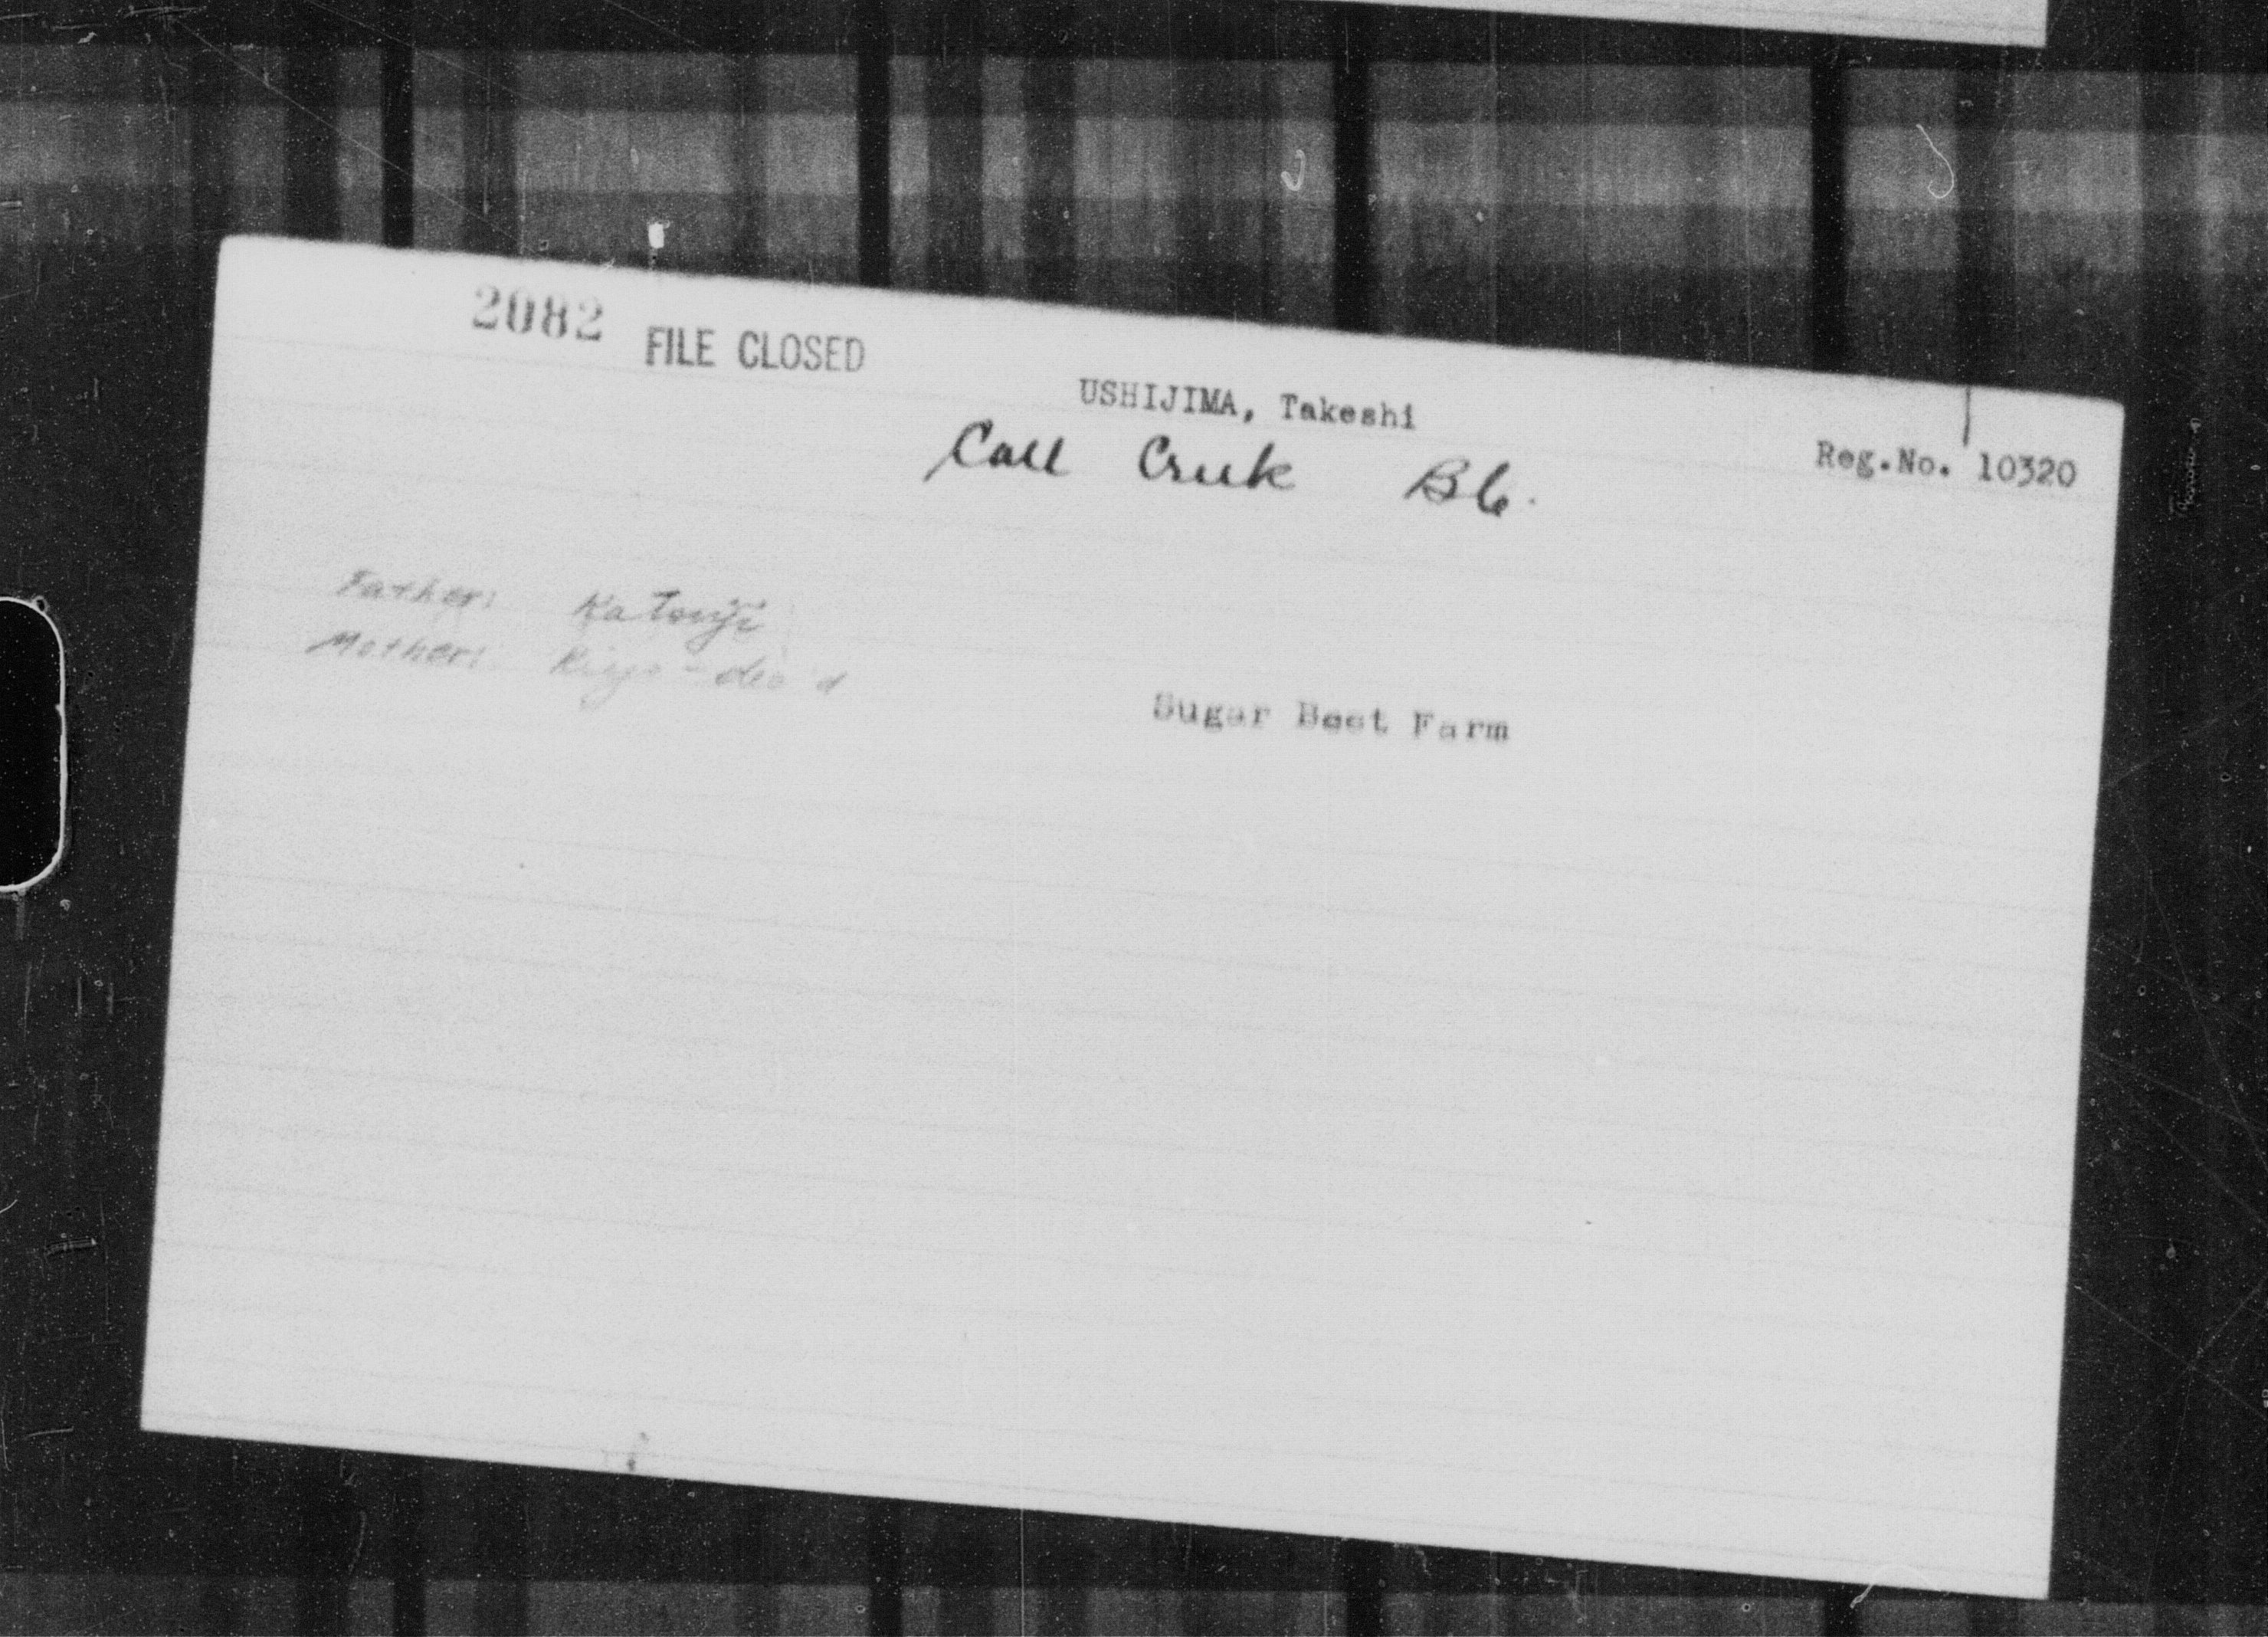 2082 FILE CLOSED
USHIJIMA, Takeshi
Call Creek BC.
Reg.No. 10320
Father: Katonji
Mother: Kiyo - dec'd
Sugar Beet Farm